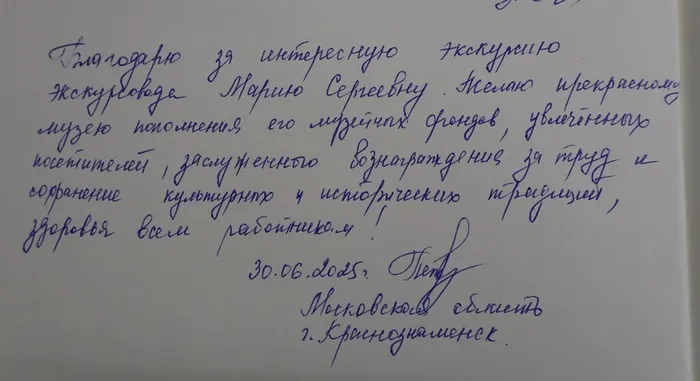 Благодарю за интересную экскурсию
экскурсовода Марию Сергеевну. Желаю прекрасному
музею пополнения его музейных фондов, увлечённых
посетителей, заслуженного вознаграждения за труд и
сохранение культурных и исторических традиций,
здоровья всем работникам!
30.06.2025г.
Московская область
г. Краснознаменск.